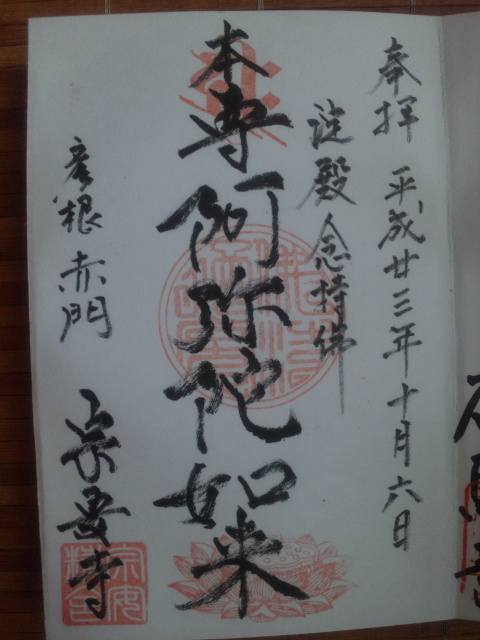 奉拝 平成廿三年十月六日
淀殿 念持佛
本尊 阿弥陀如来
彦根 赤門
宗安寺